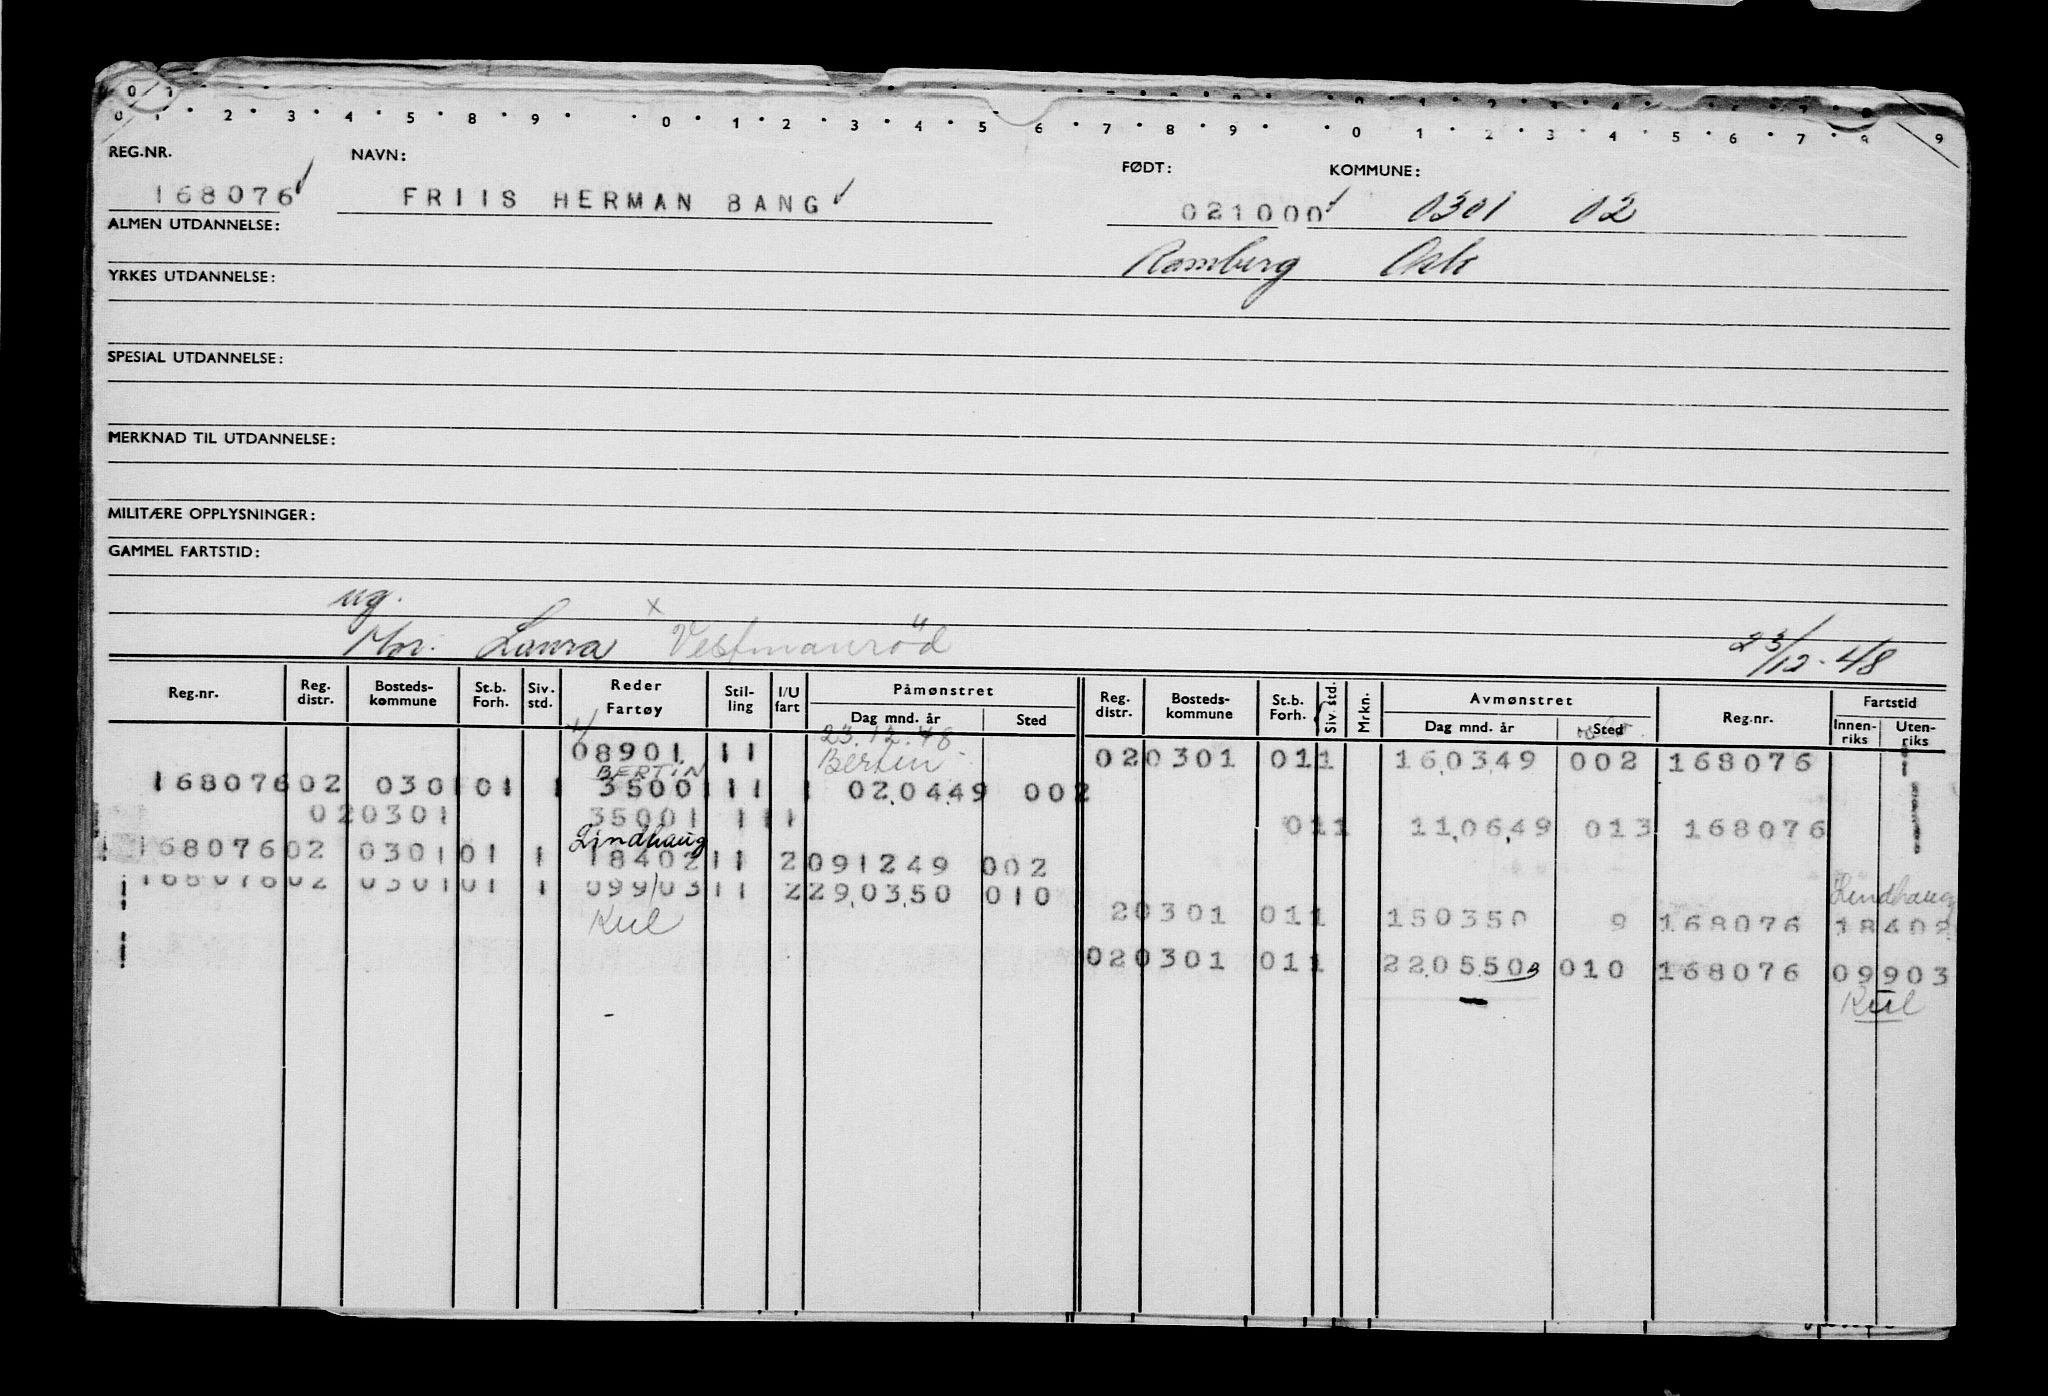 0 1 2 3 4 5 8 9 0 1 2 3 4 5 6 7 8 9 0 1 2 3 4 5 6 7 8 9
REG.NR. NAVN: FØDT: KOMMUNE:
168076 FRIIS HERMAN BANG 021000 0301 02
ALMEN UTDANNELSE:
Ramberg Oslo
YRKES UTDANNELSE:
SPESIAL UTDANNELSE:
MERKNAD TIL UTDANNELSE:
MILITÆRE OPPLYSNINGER:
GAMMEL FARTSTID:
ug.
Mor: Laura x Vestmanröd 23/12-48
Reg.nr. Reg. distr. Bosteds-kommune St.b. Forh. Siv. std. Reder Fartøy Stil-ling I/U fart Påmønstret Dag mnd. år Sted Reg. distr. Bosteds-kommune St.b. Forh. Siv. std. Mrkn. Avmønstret Dag mnd. år Sted Reg.nr. Fartstid Innen-riks Uten-riks
23.12.48
08901 11 Bertin 020301 011 160349 002 168076
BERTIN
168076 02 0301 01 1 35001 11 1 020449 002
020301 35001 11 1 011 110649 013 168076
Lindhaug
168076 02 0301 01 1 18402 11 2 091249 002
168076 02 0301 01 1 09903 11 2 290350 010
Lindhaug
20301 011 150350 9 168076 18402
Kul
020301 011 220550 010 168076 09903
Kul